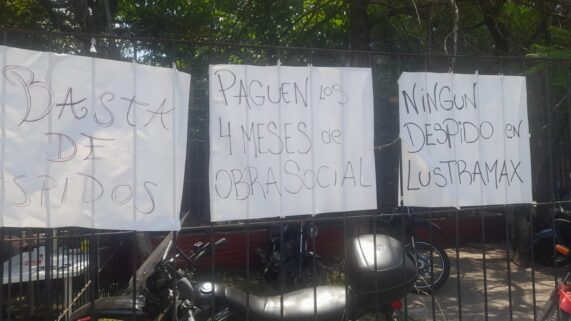 BASTA
DE
SPIDOS
PAGUEN los
4 MESES de
OBRA SOCIAL
NINGUN
DESPIDO en
LUSTRAMAX